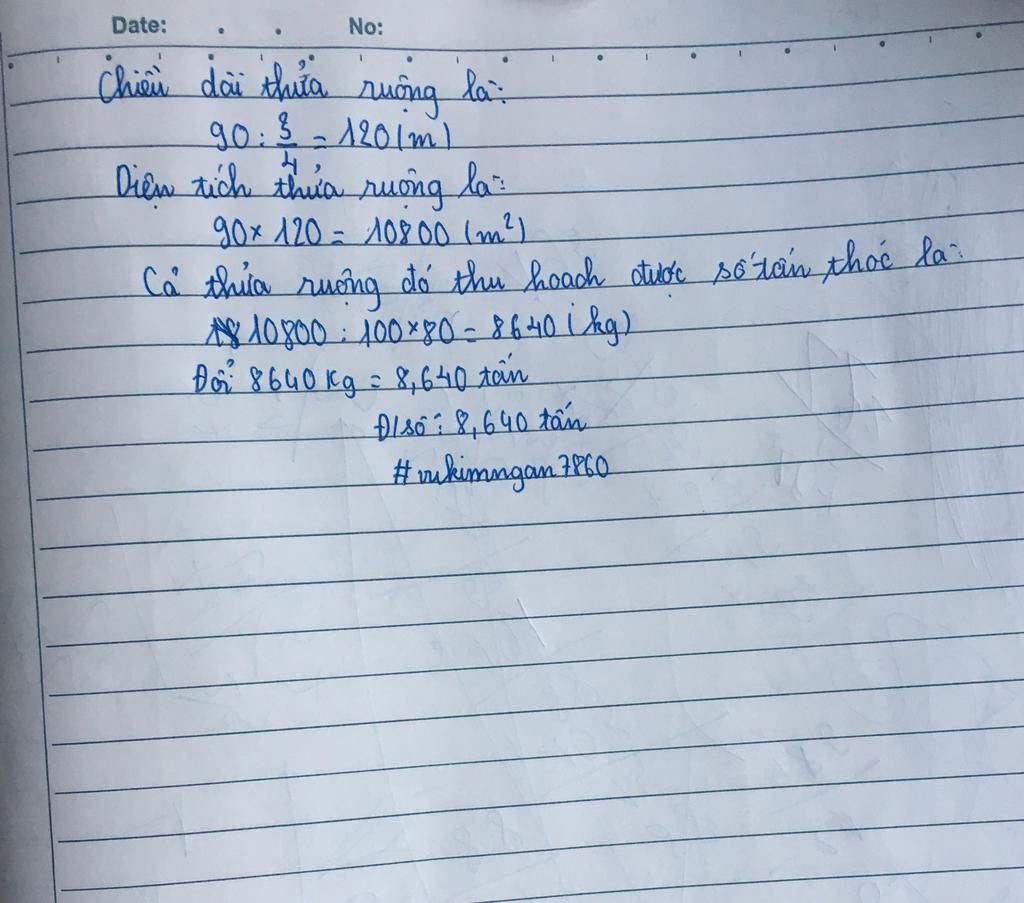 Date: . . No:
Chiều dài thửa ruộng là:
90 : 3/4 = 120 (m)
Diện tích thửa ruộng là:
90 × 120 = 10800 (m²)
Cả thửa ruộng đó thu hoạch được số tấn thóc là:
10800 : 100 × 80 = 8640 (kg)
Đổi: 8640 kg = 8,640 tấn
Đ/số: 8,640 tấn
#vukimngan7860